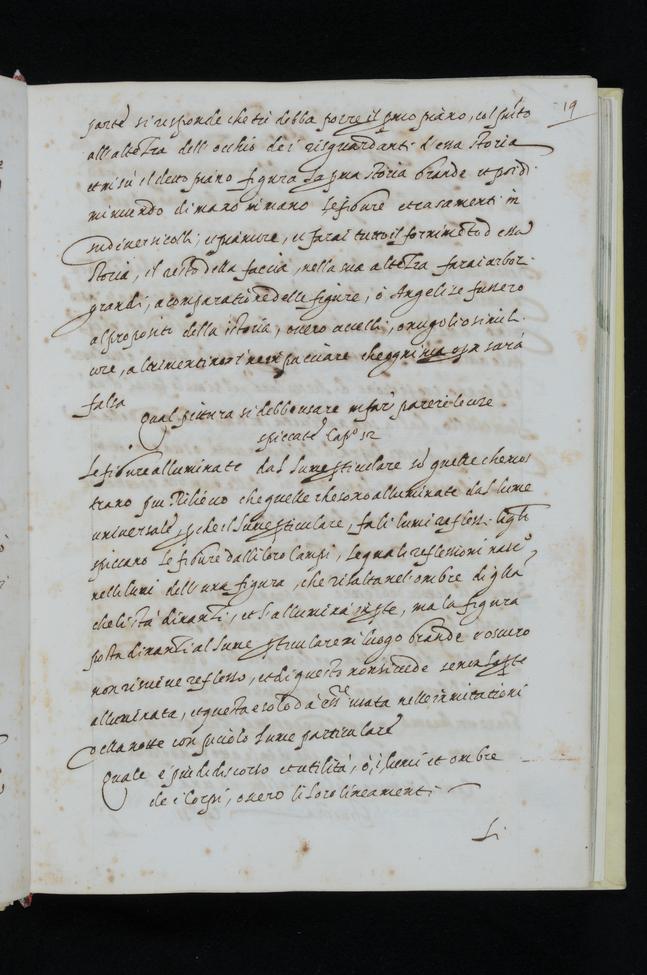 19
parte si risponde che tù debba porre il primo piano, col punto
all'altezza dell'occhio de i risguardanti d'essa storia
et in sù il detto piano figura la prima storia grande et poi di-
minuendo di mano in mano le figure et casamenti in
sù diversi colli, et pianure, et farai tutto il fornimento d'essa
storia, il resto della faccia, nella sua altezza farai arbor-
grandi, a comparatione delle figure, ò Angeli se fussero
al propositi della istoria, overo uccelli, o nugoli o simil-
falsa
Qual pittura si debbe usare in far parere le cose
spiccate Cap.º 52
Le figure alluminate dal lume particulare sò quelle che mos
trano piu Rilievo che quelle che sono alluminate dal lume
universale, perche il lume particulare, fa li lumi reflessi li qli
spiccano le figure dalli loro Campi, le quale reflessioni nasc
nelli lumi dell'una figura, che risalta nel'ombre di qlla
che li stà dinanzi, et l'allumina in parte, ma la figura
posta dinanzi al lume particulare in luogo grande e oscuro
non riceve reflesso, et di questo non si vede se non la parte
alluminata, et questa è solo da ess.re usata nelle immitationi
della notte con piciolo lume particulare
Quale è piu di discorso et utilità, ò, i lumi et ombre
de i Corpi, overo li loro lineamenti
Li